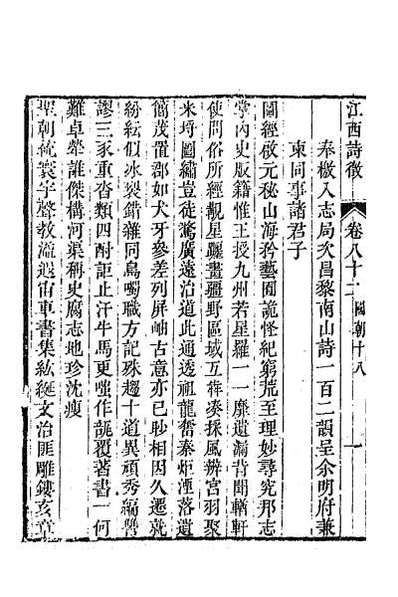 江西詩徵 卷八十二 國朝十八 一
奉檄入志局次昌黎南山詩一百二韻呈余明府兼
柬同事諸君子
圖經啟元秘山海矜藝囿詭怪紀窮荒至理妙尋究邦志
掌內史版籍惟王授九州若星羅一一靡遺漏昔聞輶軒
使問俗所經覯星躔畫疆野區域互犇湊採風辨宮羽聚
米埒圖繡豈徒驚廣遠治道此通透祖龍奮秦炬湮落遺
簡茂置郡如犬牙參差列屏岫古意亦已眇相因久遷就
紛紜似冰裂錯雜同鳥噣職方記殊趨十道異頑秀編
謬三豕重沓類四酎詎止汗牛馬更嗤作覆著書一何
難卓犖誰傑構河渠稱史腐志地珍沈瘦
聖朝統寰宇聲教溢遐宙車書集紘綖文治匪雕鏤亥章